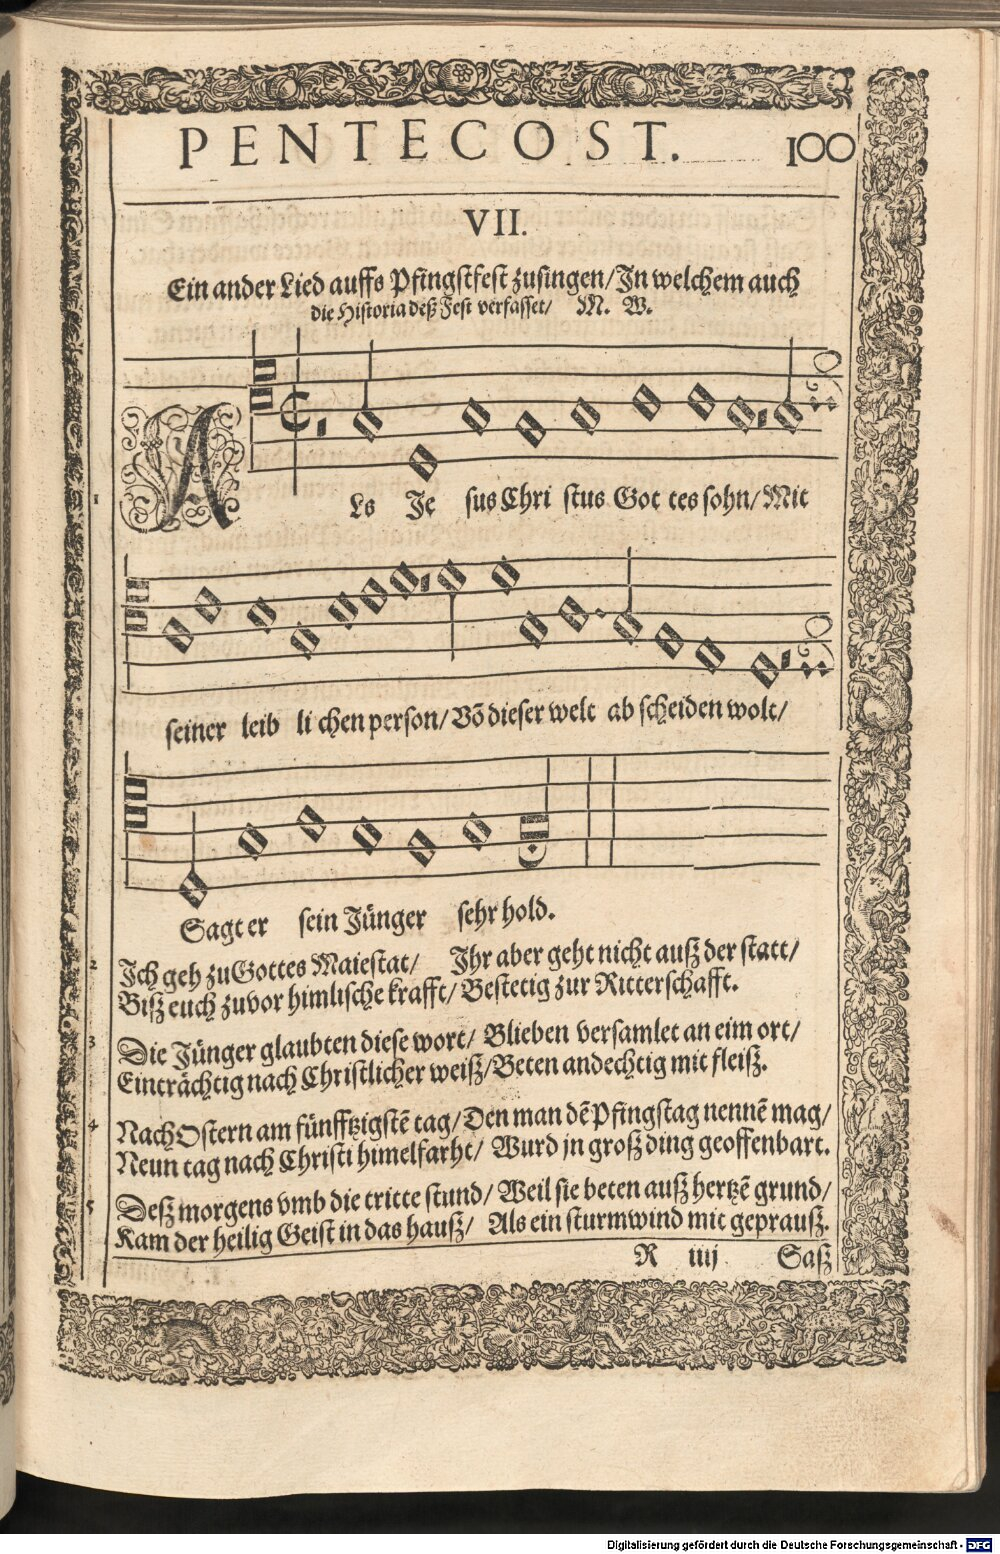 PENTECOST. 100
VII.
Ein ander Lied auffs Pfingstfest zusingen/ Jn welchem auch
die Historia deß Fest verfasset/ M. W.
1 ALs Je sus Chri stus Got tes sohn/ Mit
seiner leib li chen person/ Võ dieser welt ab scheiden wolt/
Sagt er sein Jünger sehr hold.
2 Jch geh zu Gottes Maiestat/ Jhr aber geht nicht auß der statt/
Biß euch zuvor himlische krafft/ Bestetig zur Ritterschafft.
3 Die Jünger glaubten diese wort/ Blieben versamlet an eim ort/
Einträchtig nach Christlicher weiß/ Beten andechtig mit fleiß.
4 Nach Ostern am fünfftzigstẽ tag/ Den man dẽ Pfingstag nennẽ mag/
Neun tag nach Christi himelfarht/ Wurd jn groß ding geoffenbart.
5 Deß morgens vmb die tritte stund/ Weil sie beten auß hertzẽ grund/
Kam der heilig Geist in das hauß/ Als ein sturmwind mit geprauß.
R iiij Saß
Digitalisierung gefördert durch die Deutsche Forschungsgemeinschaft - DFG